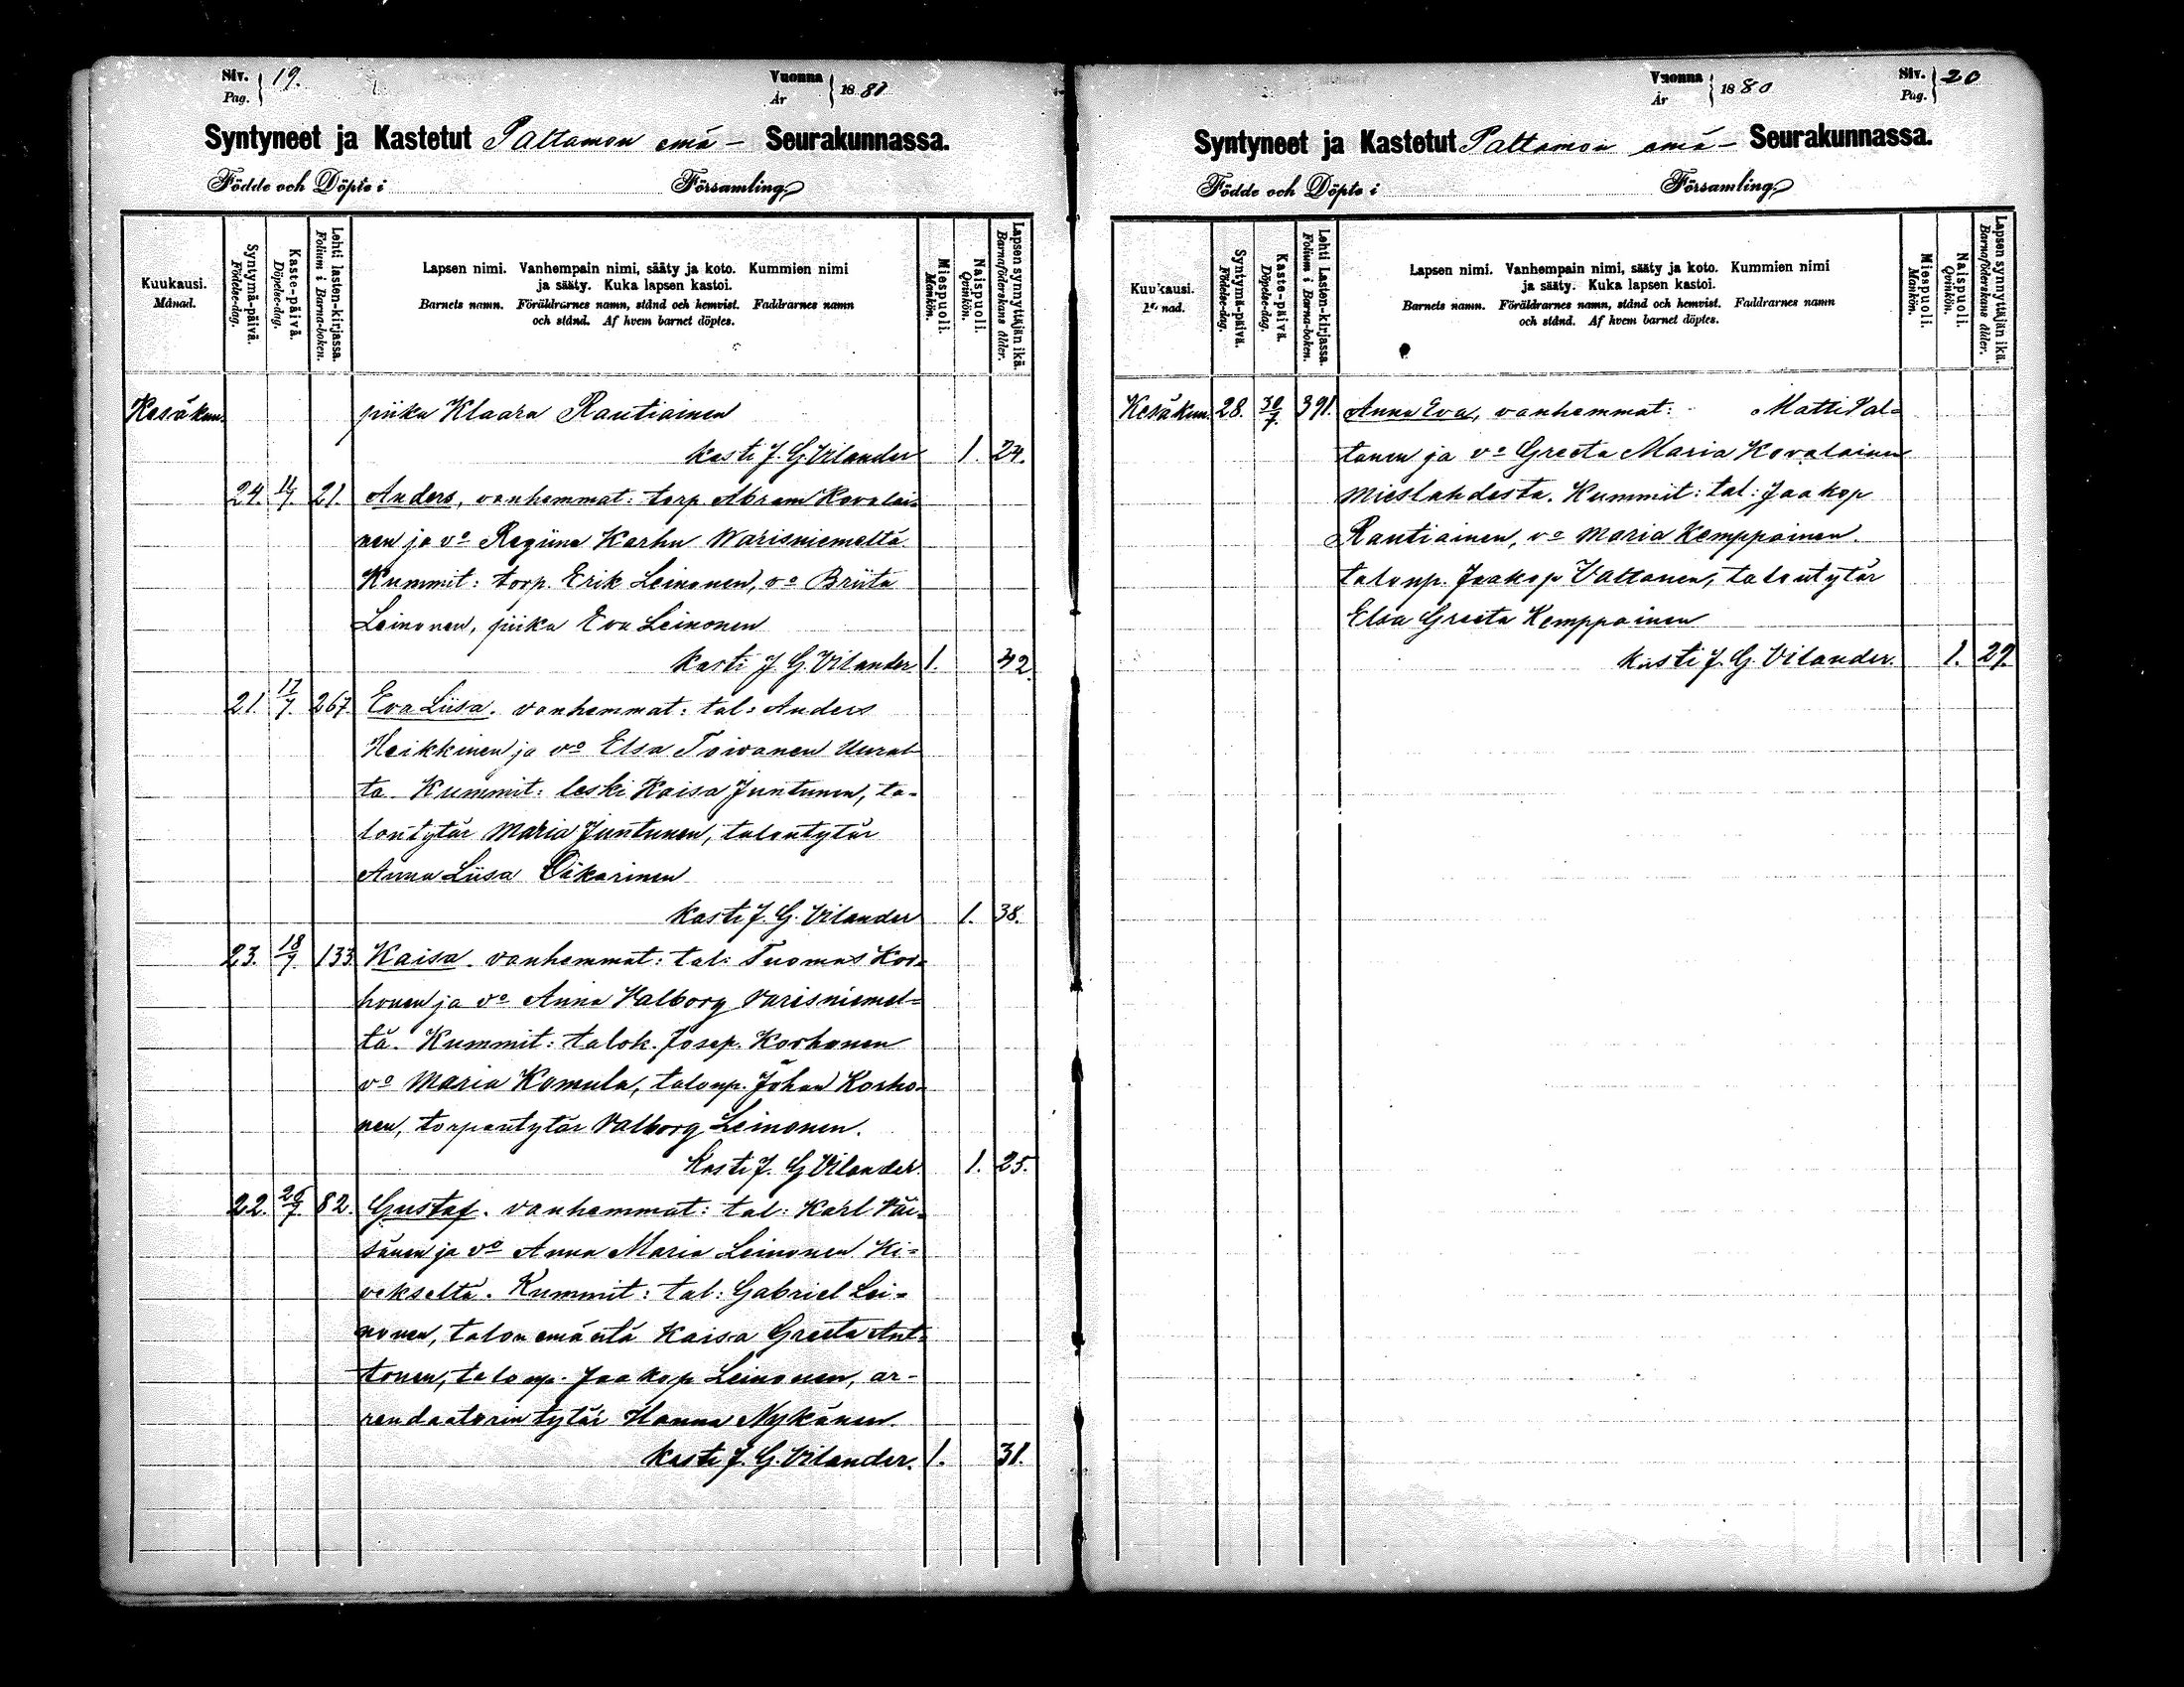 Siv. Pag. 19.
Vuonna År 1880
Syntyneet ja Kastetut Paltamon emä- Seurakunnassa.
Födde och Döpte i Församling
Kuukausi. Månad.
Syntymä-päivä. Födelse-dag.
Kaste-päivä. Döpelse-dag.
Lehti lasten-kirjassa. Folium i Barna-boken.
Lapsen nimi. Vanhempain nimi, sääty ja koto. Kummien nimi
ja sääty. Kuka lapsen kastoi.
Barnets namn. Föräldrarnes namn, stånd och hemvist. Faddrarnes namn
och stånd. Af hvem barnet döptes.
Miespuoli. Mankön.
Naispuoli. Qvinkön.
Lapsen synnyttäjän ikä. Barnaföderskans ålder.
Kesäkuu. piika Klaara Rautiainen
kasti J. G. Vilander 1. 24.
24. 11/7. 21. Anders, vanhemmat: torp Abram Kovalai=
nen ja vo Regiina Karhu Warisniemeltä
Kummit: torp. Erik Leinonen, vo Briita
Leinonen, piika Eva Leinonen
kasti J. G. Vilander 1. 42.
21. 17/7. 267. Eva Liisa. vanhemmat: tal: Anders
Heikkinen ja vo Elsa Toivanen Uural-
ta. Kummit: leski Kaisa Juntunen, ta-
lontytär Maria Juntunen, talontytär
Anna Liisa Oikarinen
kasti J. G. Vilander 1. 38.
23. 18/7. 133. Kaisa. vanhemmat: tal: Tuomas Kor=
honen ja vo Anna Valborg Varisniemel=
tä. Kummit: talok. Josep. Korhonen
vo Maria Komula, talonp. Johan Korho-
nen, torpantytär Valborg Leinonen.
Kasti J. G. Vilander. 1. 25.
22. 25/7. 82. Gustaf. vanhemmat: tal: Karl Väi=
sänen ja vo Anna Maria Leinonen Ki=
vekseltä. Kummit: tal: Gabriel Lei=
nonen, talon emäntä Kaisa Greeta Ant=
tonen, talonp. Jaakop Leinonen, ar-
rendaatorin tytär Hanna Nykänen.
kasti J. G. Vilander. 1. 31.
Vuonna År 1880
Siv. Pag. 20
Syntyneet ja Kastetut Paltamon emä- Seurakunnassa.
Födde och Döpte i Församling
Kuukausi. Månad.
Syntymä-päivä. Födelse-dag.
Kaste-päivä. Döpelse-dag.
Lehti Lasten-kirjassa. Folium i Barna-boken.
Lapsen nimi. Vanhempain nimi, sääty ja koto. Kummien nimi
ja sääty. Kuka lapsen kastoi.
Barnets namn. Föräldrarnes namn, stånd och hemvist. Faddrarnes namn
och stånd. Af hvem barnet döptes.
Miespuoli. Mankön.
Naispuoli. Qvinkön.
Lapsen synnyttäjän ikä. Barnaföderskans ålder.
Kesäkuu. 28. 30/7. 391. Anna Eva, vanhemmat: Matti Pal=
tanen ja vo Greeta Maria Kovalainen
Mieslahdesta. Kummit: tal: Jaakop
Rautiainen, vo Maria Kemppainen.
talonp. Jaakop Valtanen, talontytär
Elsa Greeta Kemppainen
kasti J. G. Vilander. 1. 29.